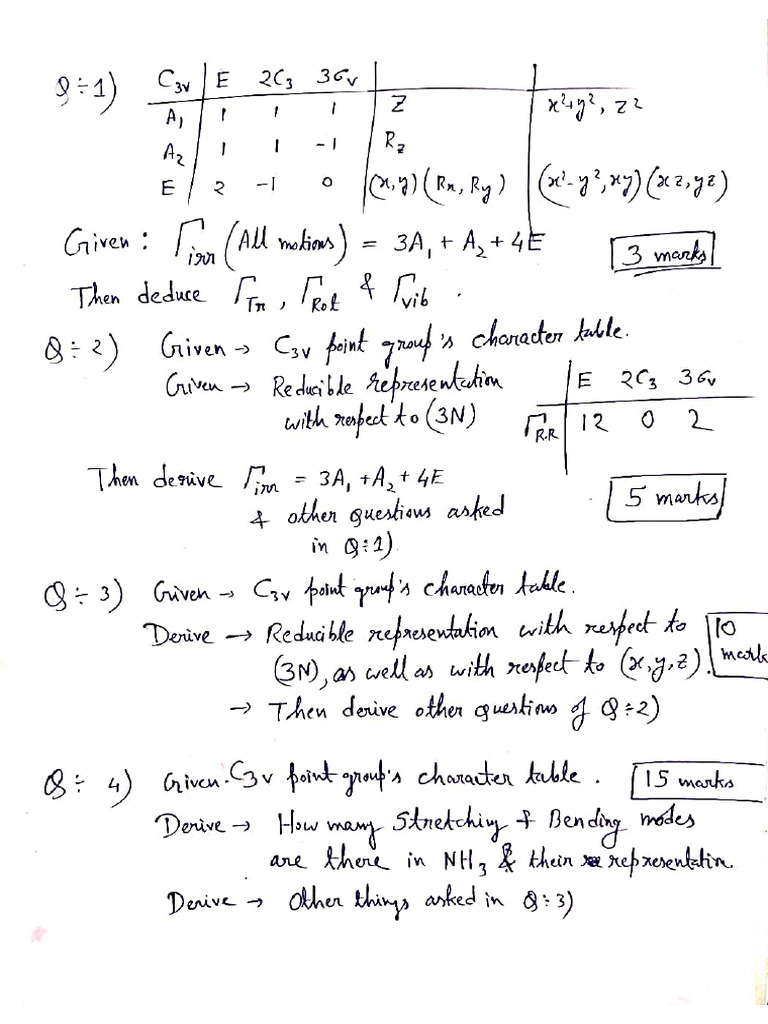 Q÷1) C3v | E 2C3 3σv
A1 | 1 1 1 | Z | x²+y², z²
A2 | 1 1 -1 | Rz
E | 2 -1 0 | (x,y)(Rx, Ry) | (x²-y², xy)(xz, yz)
Given : Γirr (All motions) = 3A1 + A2 + 4E
3 marks
Then deduce ΓTr , ΓRot & Γvib .
Q÷2) Given → C3v point group's character table.
Given → Reducible representation
with respect to (3N)
| E 2C3 3σv
ΓR.R | 12 0 2
Then derive Γirr = 3A1 + A2 + 4E
& other questions asked
in Q÷1)
5 marks
Q÷3) Given → C3v point group's character table.
Derive → Reducible representation with respect to
(3N), as well as with respect to (x,y,z).
10 mark
→ Then derive other questions of Q÷2)
Q÷ 4) Given. C3v point group's character table .
15 marks
Derive → How many Stretching & Bending modes
are there in NH3 & their representation
Derive → Other things asked in Q÷3)